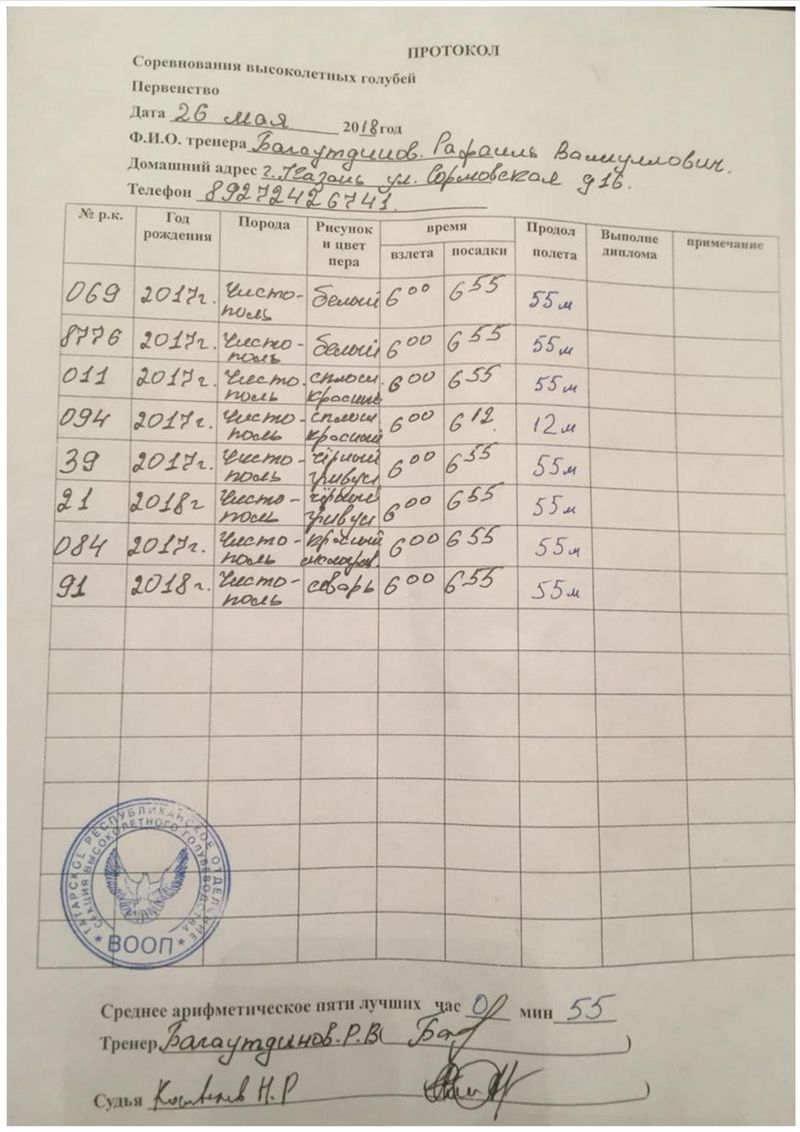 ПРОТОКОЛ
Соревнования высоколетных голубей
Первенство
Дата 26 мая 2018год
Ф.И.О. тренера Багаутдинов. Рафаиль Валиуллович.
Домашний адрес г. Казань ул. Сормовская д 16.
Телефон 89272426741.
№ р.к. Год рождения Порода Рисунок и цвет пера время взлета посадки Продол полета Выполне диплома примечание
069 2017г. Чисто-поль белый 6 00 6 55 55м
8776 2017г. Чисто-поль белый 6 00 6 55 55м
011 2017г. Чисто.поль сплош. красные 6 00 6 55 55м
094 2017г. Чисто-поль сплош красный 6 00 6 12. 12м
39 2017г. Чисто-поль чёрный гривун 6 00 6 55 55м
21 2018г Чисто-поль чёрный гривун 6 00 6 55 55м
084 2017г. Чисто-поль красный 6 00 6 55 55м
91 2018г. Чисто-поль 6 00 6 55 55м
ТАТАРСКОЕ РЕСПУБЛИКАНСКОЕ ОТДЕЛЕНИЕ
СЕКЦИЯ ВЫСОКОЛЕТНОГО ГОЛУБЕВОДСТВА
ВООП
Среднее арифметическое пяти лучших час 0 мин 55
Тренер Багаутдинов. Р.В ( Баг )
Судья Н.Р )